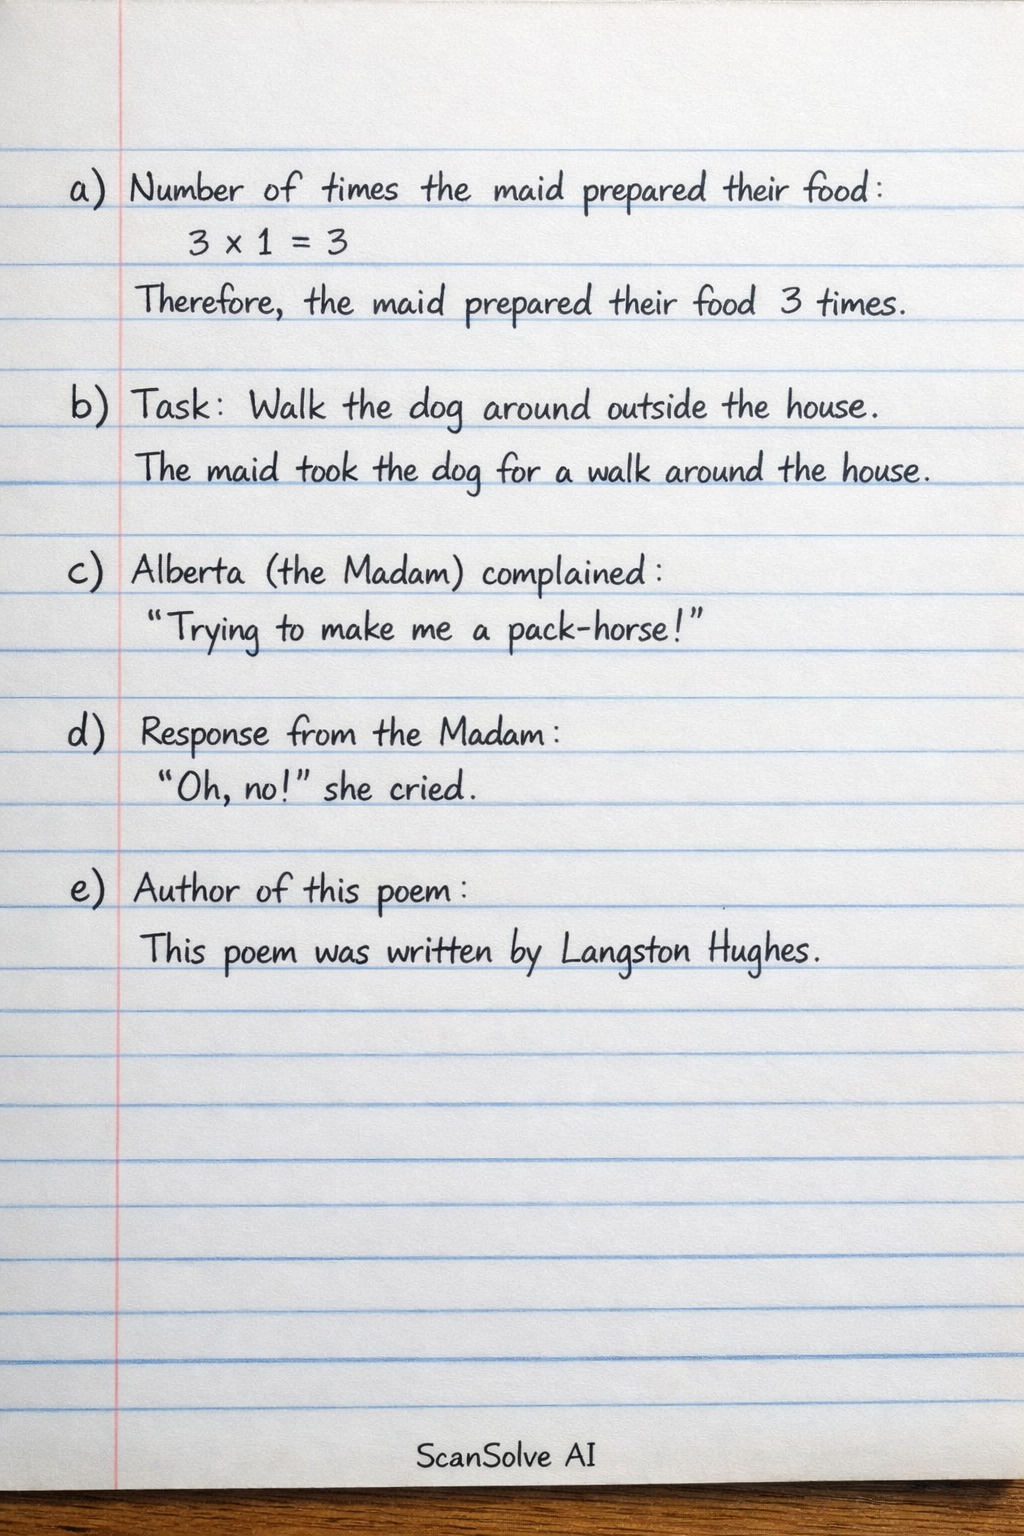 a) Number of times the maid prepared their food:
3 × 1 = 3
Therefore, the maid prepared their food 3 times.
b) Task: Walk the dog around outside the house.
The maid took the dog for a walk around the house.
c) Alberta (the Madam) complained:
“Trying to make me a pack-horse!”
d) Response from the Madam:
“Oh, no!” she cried.
e) Author of this poem:
This poem was written by Langston Hughes.
ScanSolve AI